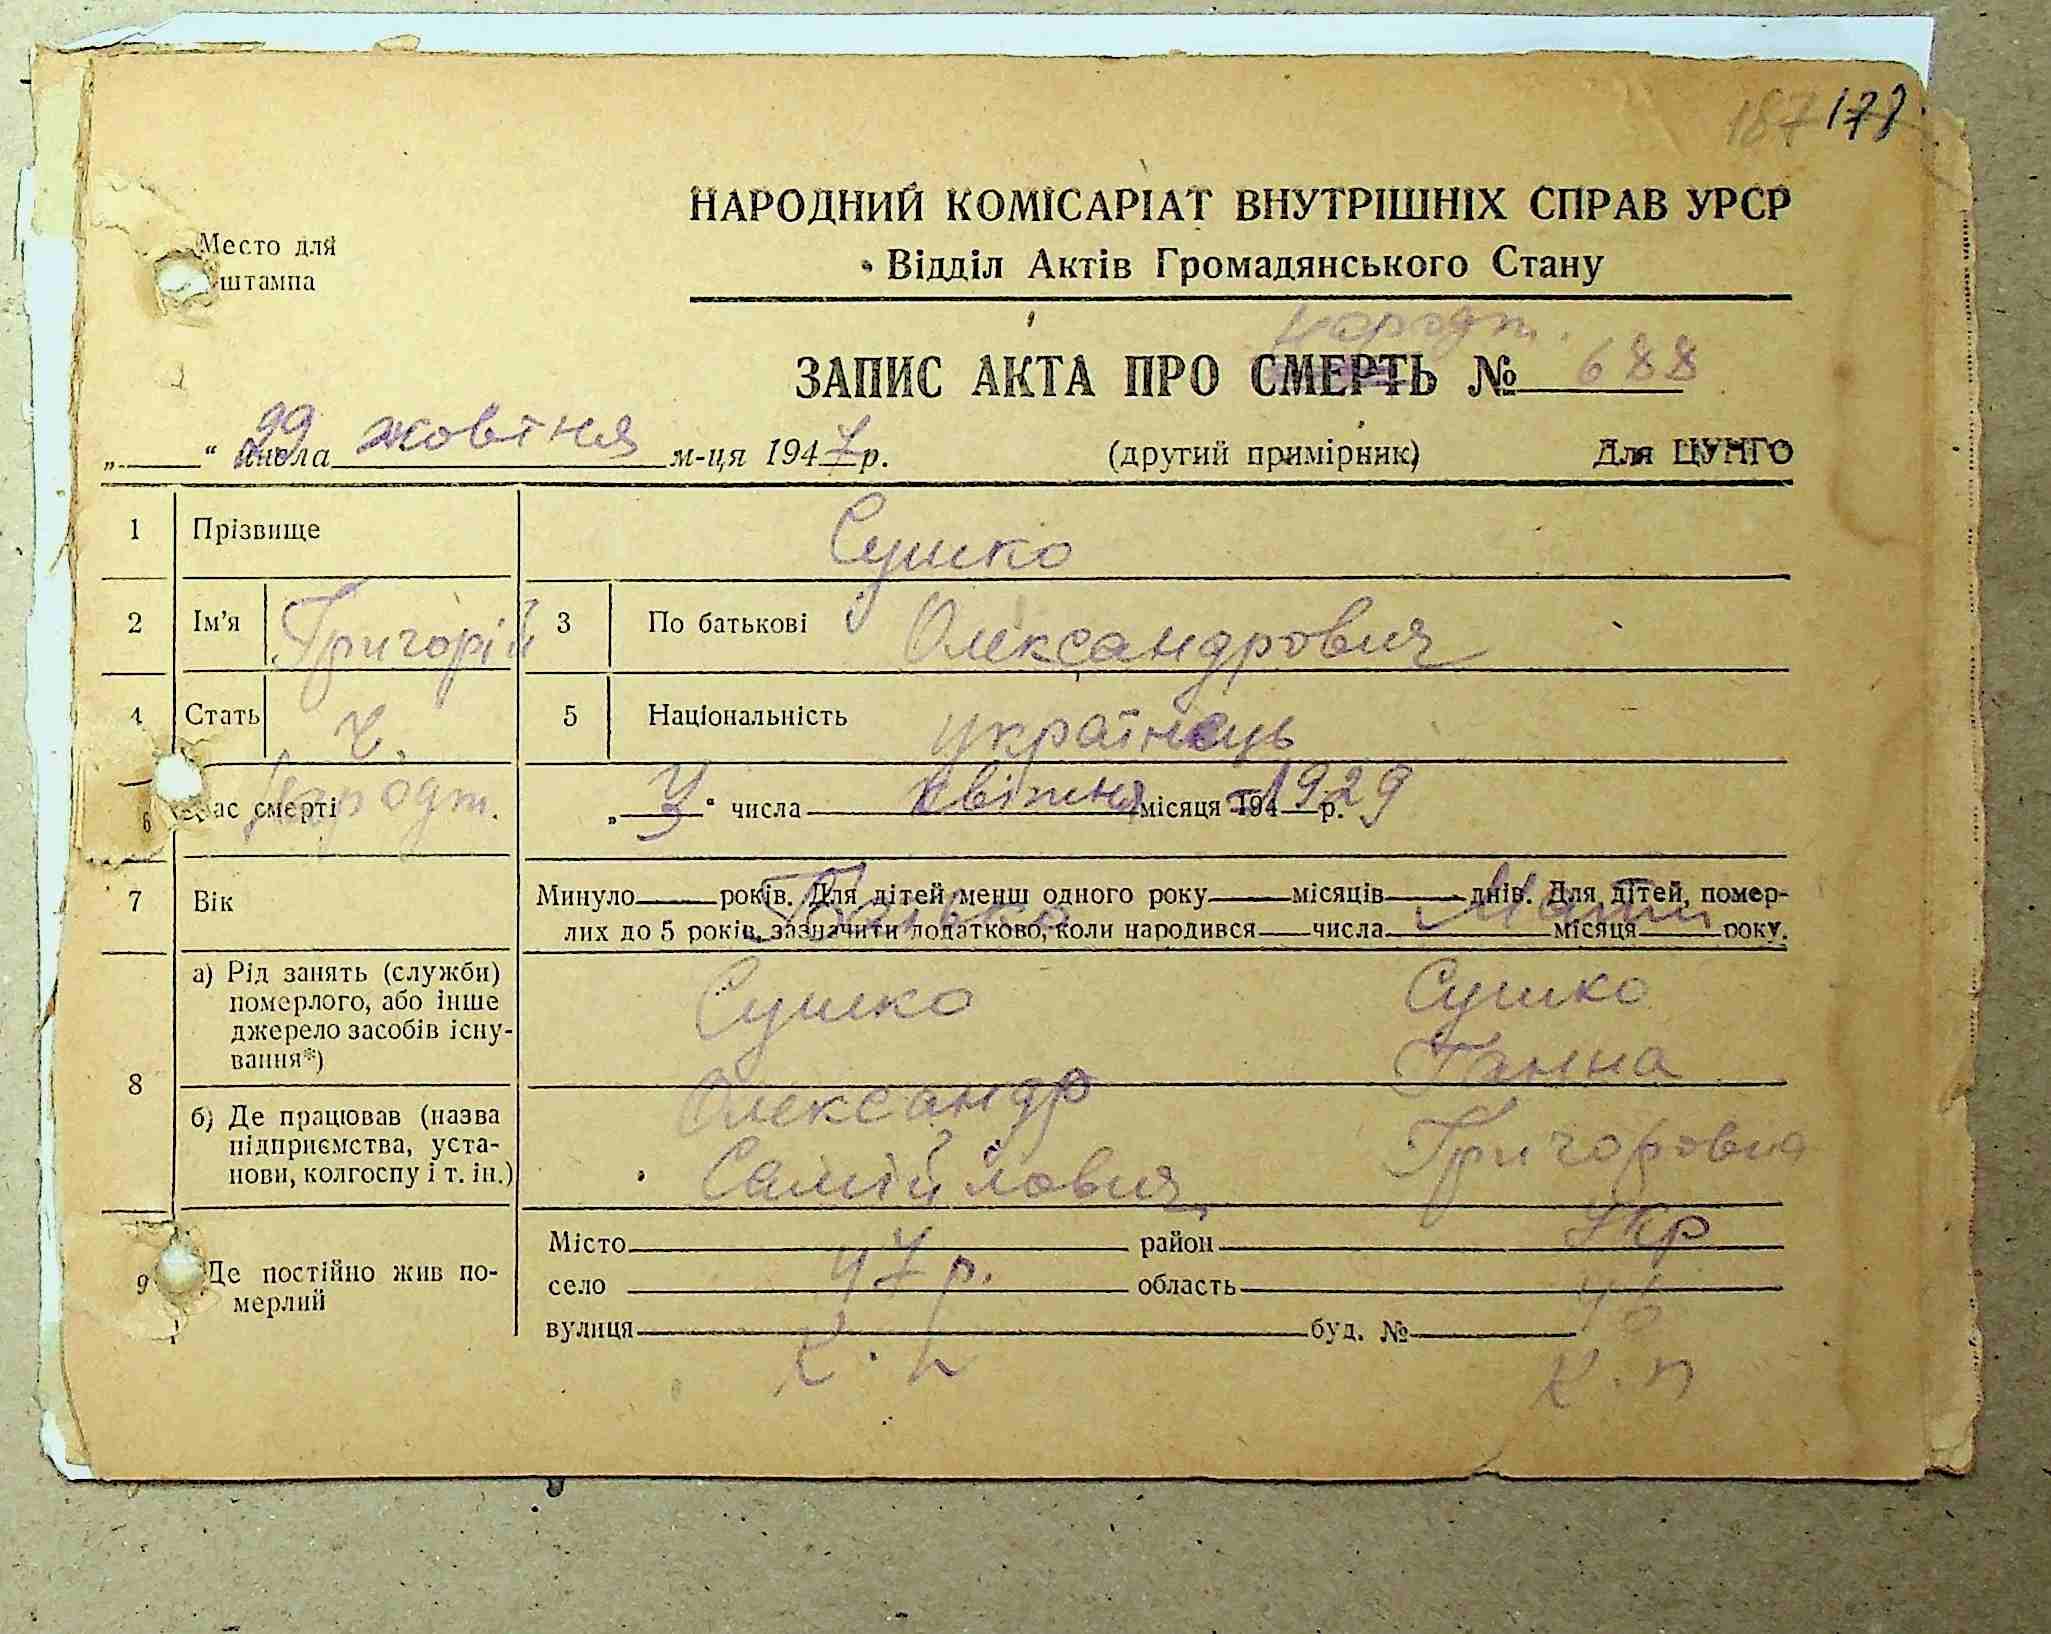 187 177
НАРОДНИЙ КОМІСАРІАТ ВНУТРІШНІХ СПРАВ УРСР
Место для штампа
Відділ Актів Громадянського Стану
народж.
ЗАПИС АКТА ПРО СМЕРТЬ № 688
„ “ 29 числа жовтня м-ця 1947 р. (другий примірник) Для ЦУНГО
1 Прізвище Сушко
2 Ім'я Григорій 3 По батькові Олександрович
4 Стать Ч. 5 Національність українець
6 Час смерті народж. „ 3 “ числа квітня місяця 194 р. 1929
7 Вік Минуло року. Для дітей менш одного року місяців днів. Для дітей, помер-
лих до 5 років, зазначити додатково, коли народився числа місяця року.
Батько Мати
8 а) Рід занять (служби) померлого, або інше джерело засобів існу-вання*)
Сушко Сушко
Олександр Ганна
б) Де працював (назва підприємства, уста-нови, колгоспу і т. ін.)
Самійлович Григоровна
9 Де постійно жив по-мерлий
Місто район Укр
село 47 р. область 46
вулиця буд. №
к.п